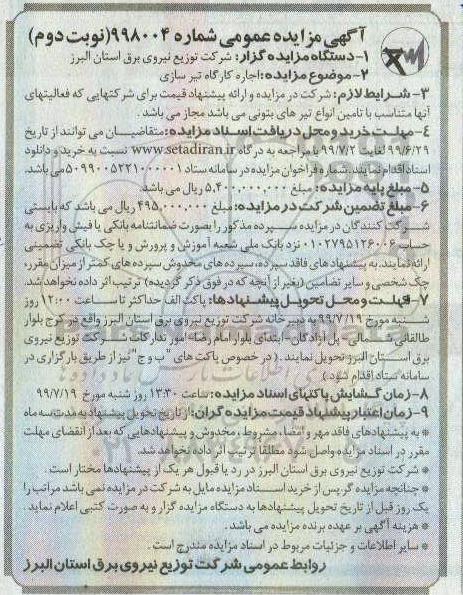 آگهی مزایده عمومی شماره ۹۹۸۰۰۴(نوبت دوم)
۱-دستگاه مزایده گزار: شرکت توزیع نیروی برق استان البرز
۲-موضوع مزایده:اجاره کارگاه تیر سازی
۳-شرایط لازم: شرکت در مزایده و ارائه پیشنهاد قیمت برای شرکتهایی که فعالیتهای
آنها متناسب با تامین انواع تیر های بتونی می باشد مجاز می باشد.
۴-مهلت خرید و محل دریافت اسناد مزایده:متقاضیان می توانند از تاریخ
۹۹/۶/۲۹ لغایت ۹۹/۷/۲ با مراجعه به درگاه www.setadiran.ir نسبت به خرید و دانلود
اسناد اقدام نمایند. شماره فراخوان مزایده در سامانه ستاد ۵۰۹۹۰۰۵۲۲۱۰۰۰۰۰۱ می باشد.
۵-مبلغ پایه مزایده: مبلغ ۵,۴۰۰,۰۰۰,۰۰۰ ریال می باشد.
۶-مبلغ تضمین شرکت در مزایده: مبلغ ۴۹۵,۰۰۰,۰۰۰ ریال می باشد که بایستی
شرکت کنندگان در مزایده سپرده مذکور را بصورت ضمانتنامه بانکی یا فیش واریزی به
حساب ۰۱۰۲۷۹۵۱۲۶۰۰۶ نزد بانک ملی شعبه آموزش و پرورش و یا چک بانکی تضمینی
ارائه نمایند. به پیشنهادهای فاقد سپرده، سپرده های مخدوش سپرده های کمتر از میزان مقرر،
چک شخصی و سایر تضامین (بغیر از آنچه که در فوق ذکر گردید) ترتیب اثر داده نخواهد شد.
۷-مهلت و محل تحویل پیشنهادها: پاکت الف حداکثر تا ساعت ۱۲:۰۰ روز
شنبه مورخ ۹۹/۷/۱۹ به دبیر خانه شرکت توزیع نیروی برق استان البرز واقع در کرج بلوار
طالقانی شمالی - پل آزادگان - ابتدای بلوار امام رضا- امور تدارکات شرکت توزیع نیروی
برق استان البرز تحویل نمایند. ( در خصوص پاکت های "ب و ج" نیز از طریق بارگزاری در
سامانه ستاد اقدام شود)
۸-زمان گشایش پاکتهای اسناد مزایده: ساعت ۱۳:۳۰ روز شنبه مورخ ۹۹/۷/۱۹
۹-زمان اعتبار پیشنهاد قیمت مزایده گران:از تاریخ تحویل پیشنهاد به مدت سه ماه
* به پیشنهادهای فاقد مهر و امضا، مشروط، مخدوش و پیشنهادهایی که بعد از انقضای مهلت
مقرر در اسناد مزایده واصل شود مطلقا ترتیب اثر داده نخواهد شد.
* شرکت توزیع نیروی برق استان البرز در رد یا قبول هر یک از پیشنهادها مختار است.
* چنانچه مزایده گر پس از خرید اسناد مزایده مایل به شرکت در مزایده نمی باشد مراتب را
یک روز قبل از تاریخ تحویل پیشنهادها به دستگاه مزایده گزار و به صورت کتبی اعلام نماید.
* هزینه آگهی بر عهده برنده مزایده می باشد.
* سایر اطلاعات و جزئیات مربوط در اسناد مزایده مندرج است.
روابط عمومی شرکت توزیع نیروی برق استان البرز